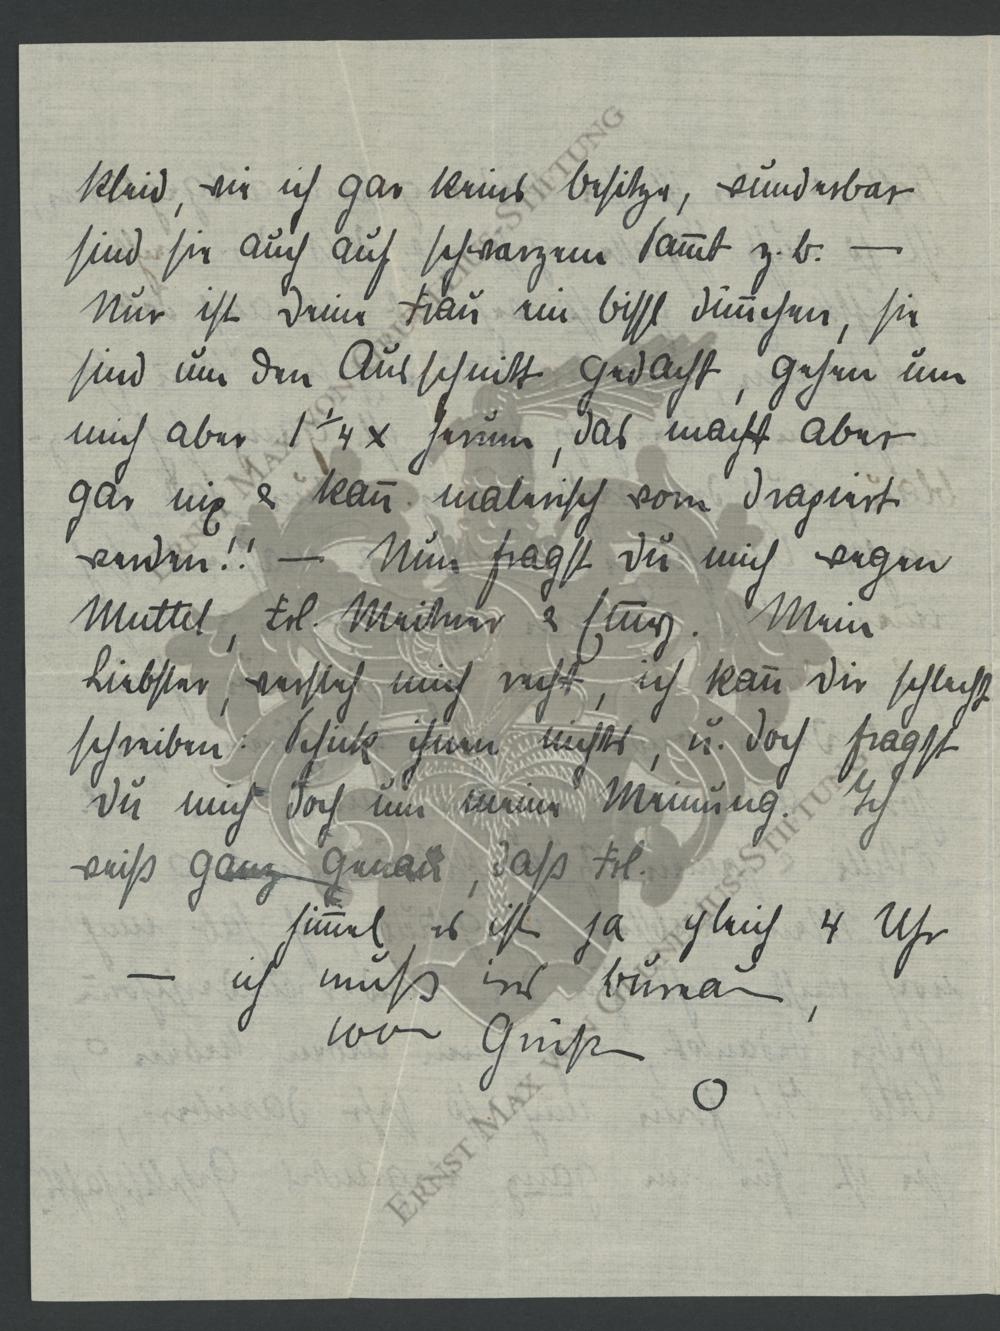 Kleid, wie ich gar keins besitze, wunderbar
sind sie auch auf schwarzem Samt z. b. —
Nur ist deine Frau ein bissl dünnchen, sie
sind um den Ausschnitt gedacht, gehen um
mich aber 1 1/4 x herum, das macht aber
gar nix & kann malerisch vorn drapiert
werden!! — Nun fragst du mich wegen
Muttel, Frl. Meitner &. Mein
Liebster, versteh mich recht, ich kann dir schlecht
schreiben: Schick ihnen nichts, u. doch fragst
du mich doch um meine Meinung. Ich
weiß ganz genau, daß Frl.
himmel, es ist ja gleich 4 Uhr
— ich muß ins bureau,
1000 Grüße
O
ERNST MAX VON GRUNELIUS-STIFTUNG
ERNST MAX VON GRUNELIUS-STIFTUNG